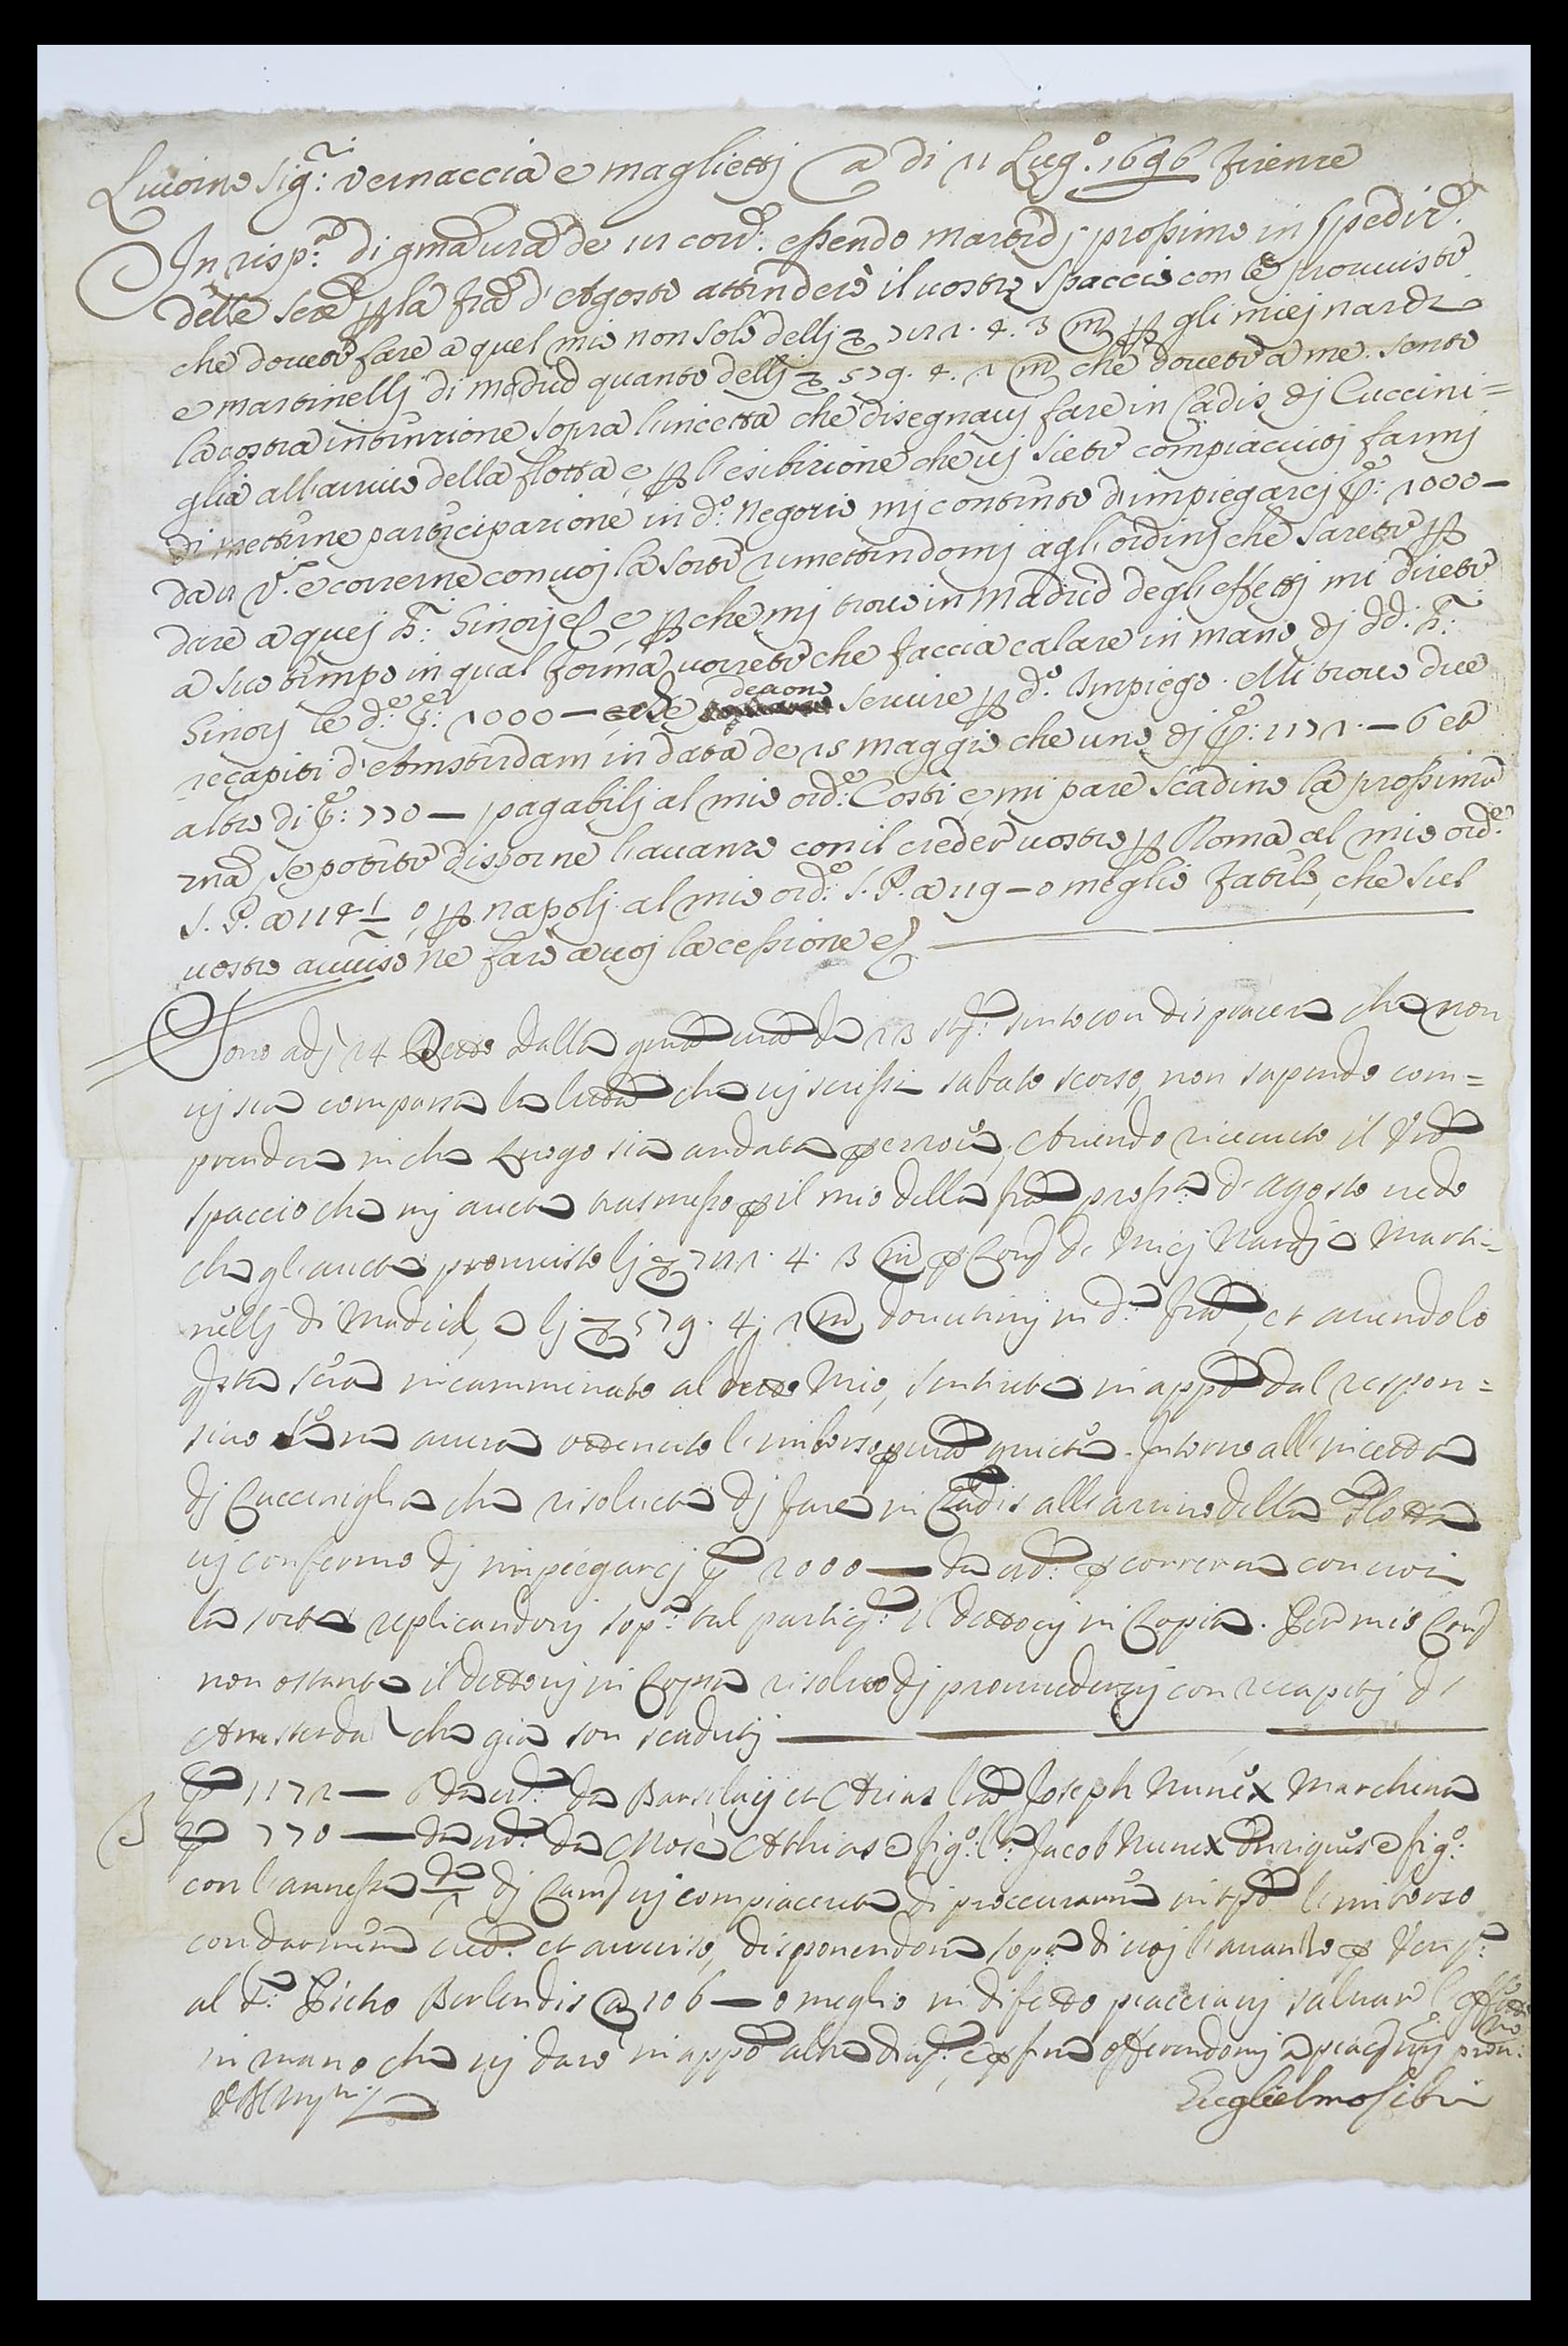 Livorno Sig.ri Vernaccia e Maglietti a di 11 Lug.o 1696 Firenze
In risp.ta di gma vra de corr.e essendo martedj prossimo in spedir.e
delle Scre p la fra d'Agosto attenderò il vostro Spaccio con le prouviste
che dovete fare a quel mio non solo dellj 4. 3 p gli miej Nardi
e Martinellj di Madrid quanto dellj 579. 4. 1 che dovete a me. Sento
la vostra intenzione sopra l'incetta che disegnavj fare in Cadis dj Cuccini=
glia all'arrivo della flotta e p l'esibizione che vj siete compiaciutj farmj
di mettene participazione in d.o negozio mj contento d'impiegarcj 1000 —
da e correrne con voj la sorte rimettendomj agl'ordinj che sarete p
dare a quej Ginorj e p che mj trovo in Madrid degl'effettj mi direte
a suo tempo in qual forma vorrete che faccia calare in mano dj dd.
Ginorj le d.e 1000 — che deono servire p d.o Impiego. Mi trovo due
recapiti d'Amsterdam in data de 15 maggio che uno dj 1171 — 6 et
altro di 770 — pagabilj al mio ord.e Costi e mi pare scadino la prossima
se potete disporne l'avanzo con il creder vostro p Roma al mio ord.e
S. P. a 114 o p Napolj al mio ord.e S. P. a 119 — o meglio fatelo, che sul
vostro avviso ne farò a voj la cessione
Sono adj 14 detto dalla gma vra de 13 st.e sento con dispiacere che non
vj sia comparsa la che vj scrissi sabato scorso, non sapendo com=
prendere in che luogo sia andata Avendo ricevuto il vro
spaccio che mj avete trasmesso p il mio della fra pross.a d'agosto vedo
che gl'avete provvisto lj 4. 3 p Conto de Miej Nardj e Marti=
nellj di Madrid, e lj 579. 4. 1 dovutimj in d.a fra, et avendolo
qsta sera incamminato al detto Mio, sentirete in app.o dal respon=
sivo se ne avera ottenuto l'imborso Intorno all'incetta
dj Cucciniglia che risolvete dj fare in Cadis all'arrivo della Flotta
vj confermo dj impiegarcj 1000 — p correrne con voi
la sorte replicandovj sop.a tal partic.e il dettovj in Copia. Per mio Conto
non ostante il dettovj in Copia risolvo dj provvedervj con recapitj di
Amsterda che gia son scadutj
1171 — 6 da Barsilaij et Arias Joseph Nunex Marchena
770 — da Mosè Athias e fig.o Jacob Nunex Enriques e fig.o
con l'annessa dj vj compiacerete di proccurarne l'imborso
con darmene cred.o et avviso, disponendone sop.a di voj l'avanzo p
al S.r Pietro Berlendis a 106 — o meglio in difetto piacciavj salvare l'effetto
in mano che vj darò in app.o altra e p fine offerendomj
Guglielmo Libri